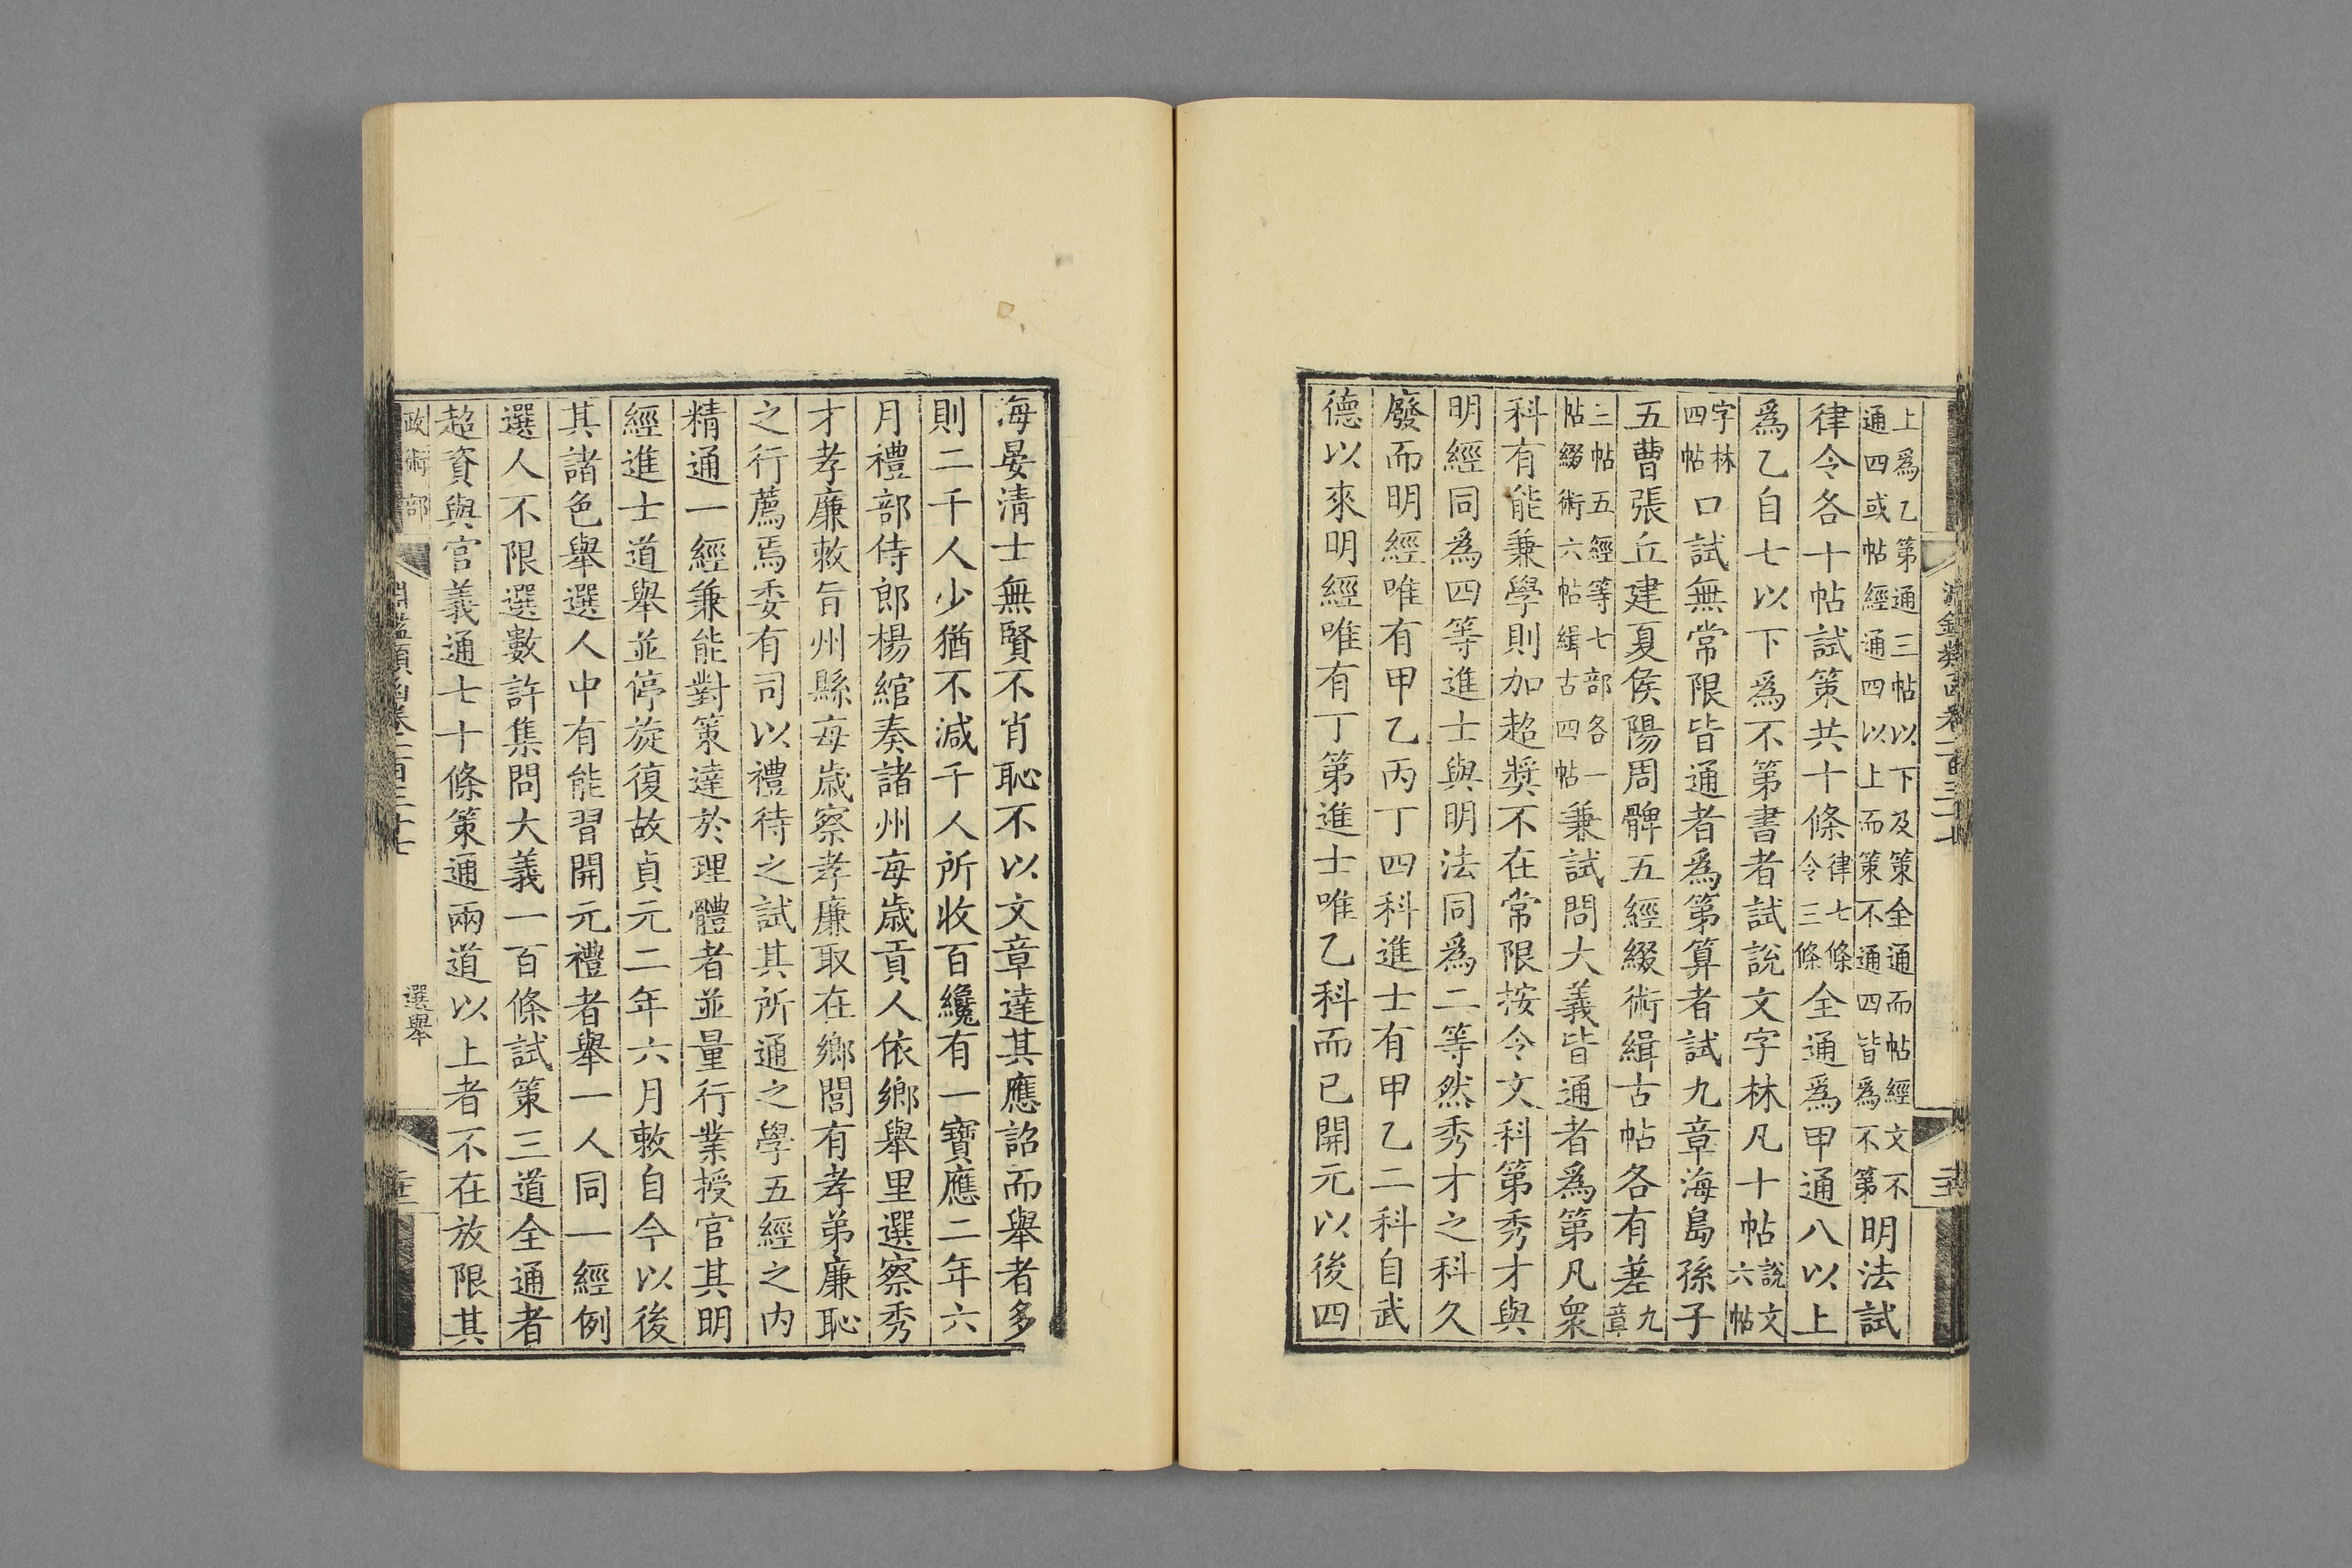 上爲乙第通三帖以下及策全通而帖經文不通四或帖經通四以上而策不通四皆爲不第明法試
律令各十帖試策共十條律七條令三條全通爲甲通八以上
爲乙自七以下爲不第書者試說文字林凡十帖說文六帖
字林四帖口試無常限皆通者爲第算者試九章海島孫子
五曹張丘建夏侯陽周髀五經綴術緝古帖各有差九章
三帖五經等七部各一帖綴術六帖緝古四帖兼試問大義皆通者爲第凡衆
科有能兼學則加超奬不在常限按令文科第秀才與
明經同爲四等進士與明法同爲二等然秀才之科久
廢而明經唯有甲乙丙丁四科進士有甲乙二科自武
德以來明經唯有丁第進士唯乙科而已開元以後四
海晏淸士無賢不肖恥不以文章達其應詔而舉者多
則二千人少猶不減千人所收百纔有一寶應二年六
月禮部侍郎楊綰奏諸州每歲貢人依鄉舉里選察秀
才孝廉敕旨州縣每歲察孝廉取在鄉閭有孝弟廉恥
之行薦焉委有司以禮待之試其所通之學五經之內
精通一經兼能對策達於理體者並量行業授官其明
經進士道舉並停旋復故貞元二年六月敕自今以後
其諸色舉選人中有能習開元禮者舉一人同一經例
選人不限選數許集問大義一百條試策三道全通者
超資與官義通七十條策通兩道以上者不在放限其
政術部
淵鑑類函卷一百三十七
選舉